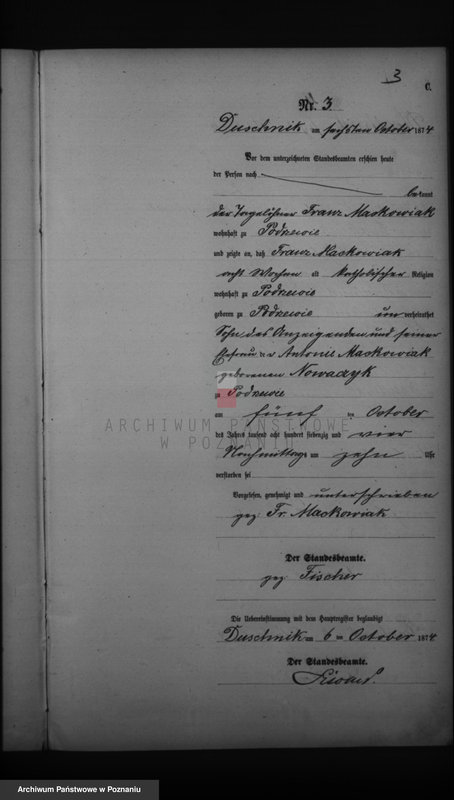 3
C.
Nr. 3
Duschnik am sechsten October 1874
Vor dem unterzeichneten Standesbeamten erschien heute
der Person nach
bekannt
der Tagelöhner Franz Mackowiak
wohnhaft zu Podrzewie
und zeigte an, daß Franz Mackowiak
acht Wochen alt katholischer Religion
wohnhaft zu Podrzewie
geboren zu Podrzewie unverheirathet
Sohn des Anzeigenden und seiner
Ehefrau der Antonie Mackowiak
geborenen Nowaczyk
zu Podrzewie
am fünf ten October
des Jahres tausend acht hundert siebenzig und vier
Nachmittags um zehn Uhr
verstorben sei
ARCHIWUM PAŃSTWOWE
W POZNANIU
Vorgelesen, genehmigt und unterschrieben
gez. Fr. Mackowiak
Der Standesbeamte.
gez. Fischer
Die Uebereinstimmung mit dem Hauptregister beglaubigt
Duschnik am 6 ten October 1874
Der Standesbeamte.
Archiwum Państwowe w Poznaniu